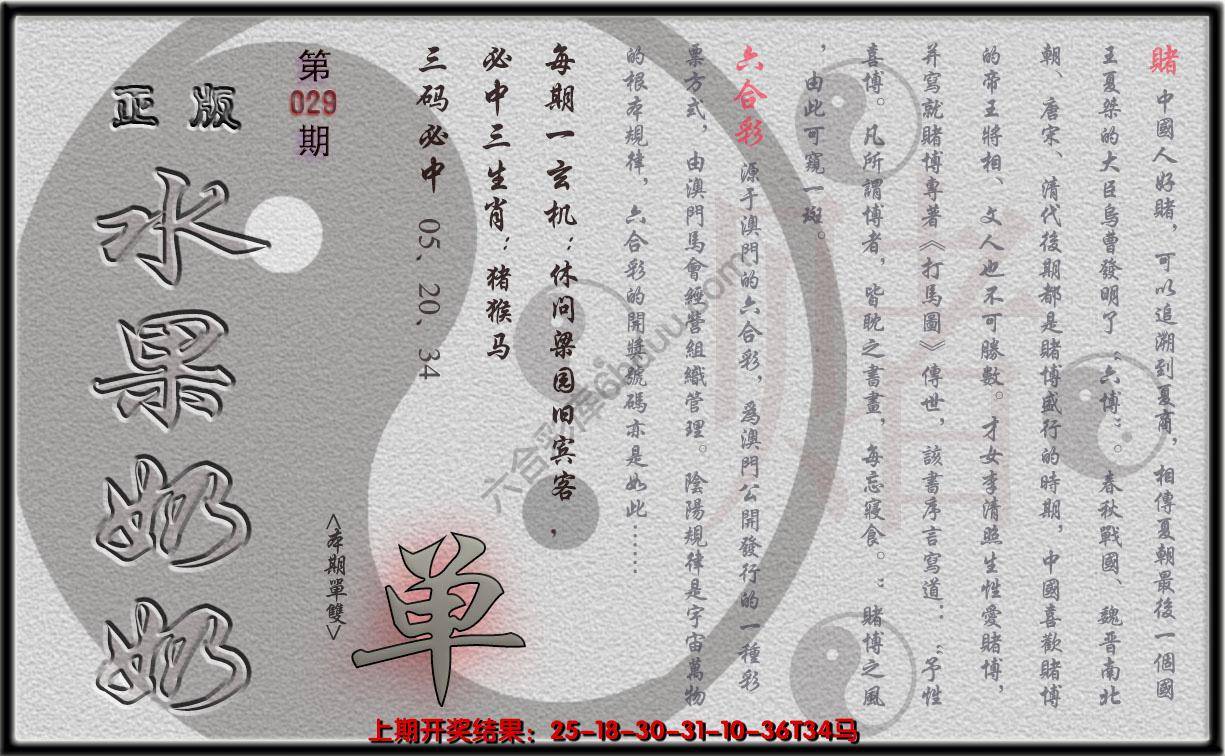 賭 中國人好賭，可以追溯到夏商，相傳夏朝最後一個國
王夏桀的大臣烏曹發明了“六博”。春秋戰國、魏晋南北
朝、唐宋、清代後期都是賭博盛行的時期，中國喜歡賭博
的帝王將相、文人也不可勝數。才女李清照生性愛賭博，
并寫就賭博專著《打馬圖》傳世，該書序言寫道：“予性
喜博。凡所謂博者，皆耽之晝晝，每忘寢食。”賭博之風
，由此可窺一斑。
六合彩 源于澳門的六合彩，爲澳門公開發行的一種彩
票方式，由澳門馬會經營組織管理。陰陽規律是宇宙萬物
的根本規律，六合彩的開獎號碼亦是如此……
每期一玄机：休问梁园旧宾客，
必中三生肖：猪猴马
三码必中 05、20、34
第029期
<本期單雙>
单
正版
水果奶奶
賭
六合彩库6buuu.com
上期开奖结果：25-18-30-31-10-36T34马